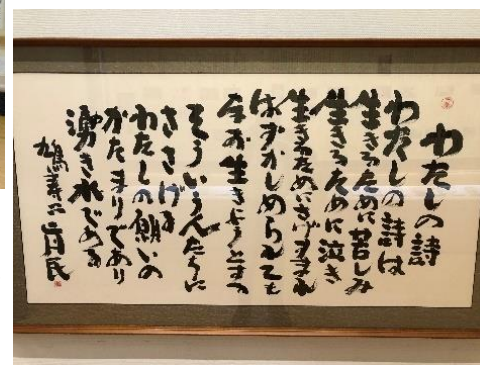 わたしの詩
わたしの詩は
生きるために苦しみ
生きるために泣き
生きるためにさげすまれ
はずかしめられても
なお生きようとする
そういう人たちに
ささげる
わたしの願いの
かたまりであり
湧き水である
真民